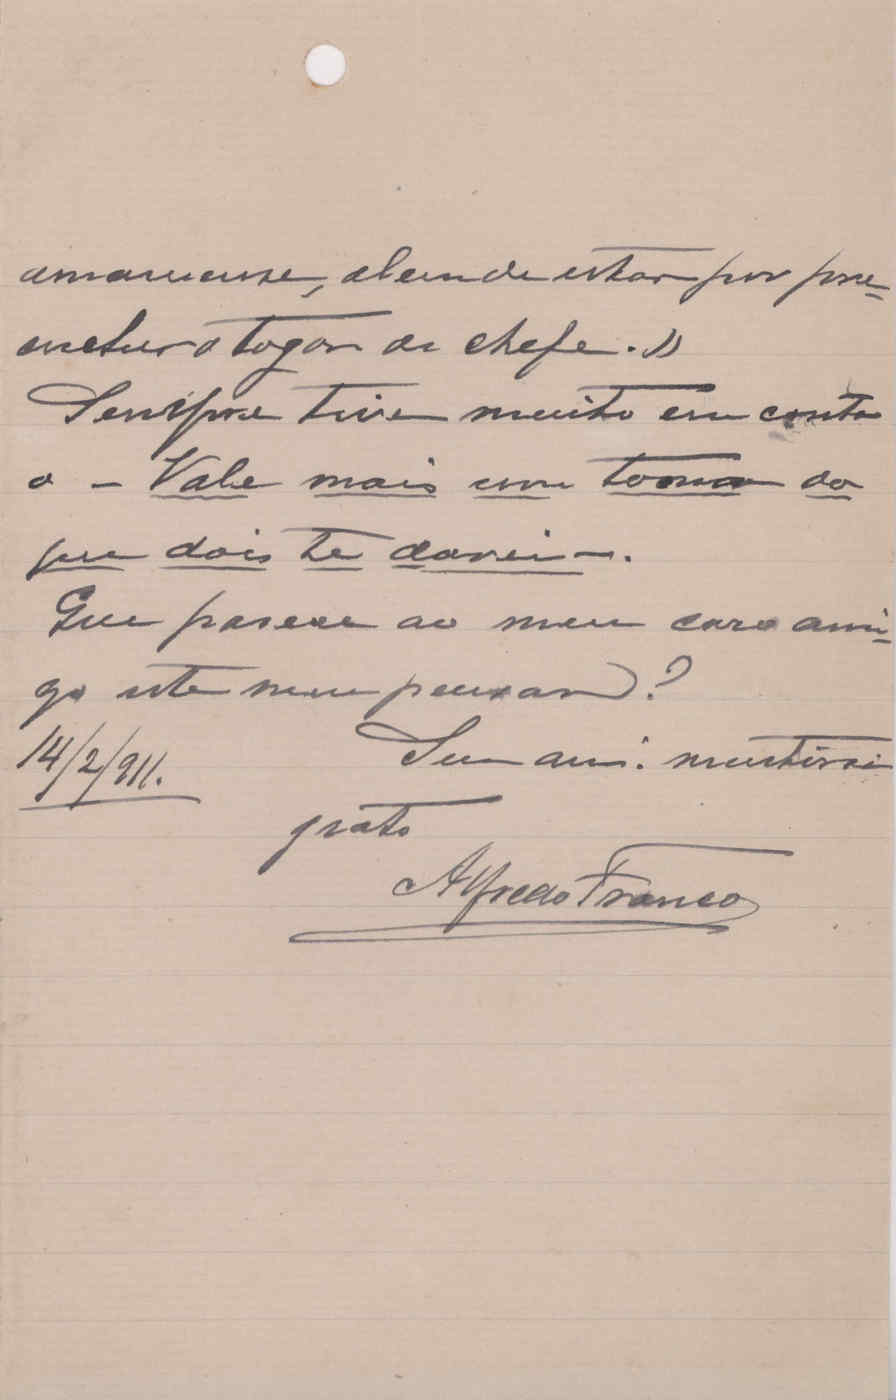 amanuense, alem de estar por pre-
encher o logar de chefe. »
Sempre tive muito em conta
o - Vale mais um toma do
que dois te darei -.
Que parece ao meu caro ami-
go este meu pensar?
14/2/911.
Seu am.
grato
Alfredo Franco